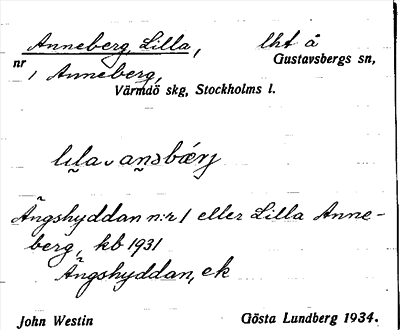 Anneberg, Lilla, lht å
nr Gustavsbergs sn,
1 Anneberg,
Värmdö skg, Stockholms l.
Ängshyddan n:r 1 eller Lilla Anne-
berg, kb 1931
Ängshyddan, ek
John Westin Gösta Lundberg 1934.